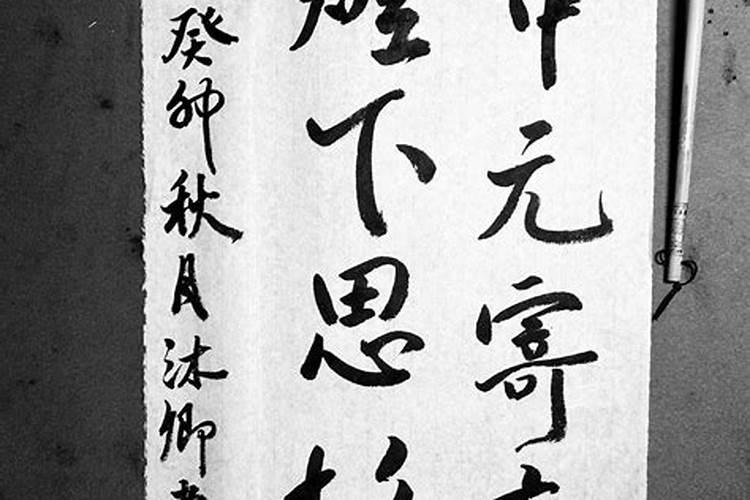 中元寄
燈下思
癸卯秋月沐卿